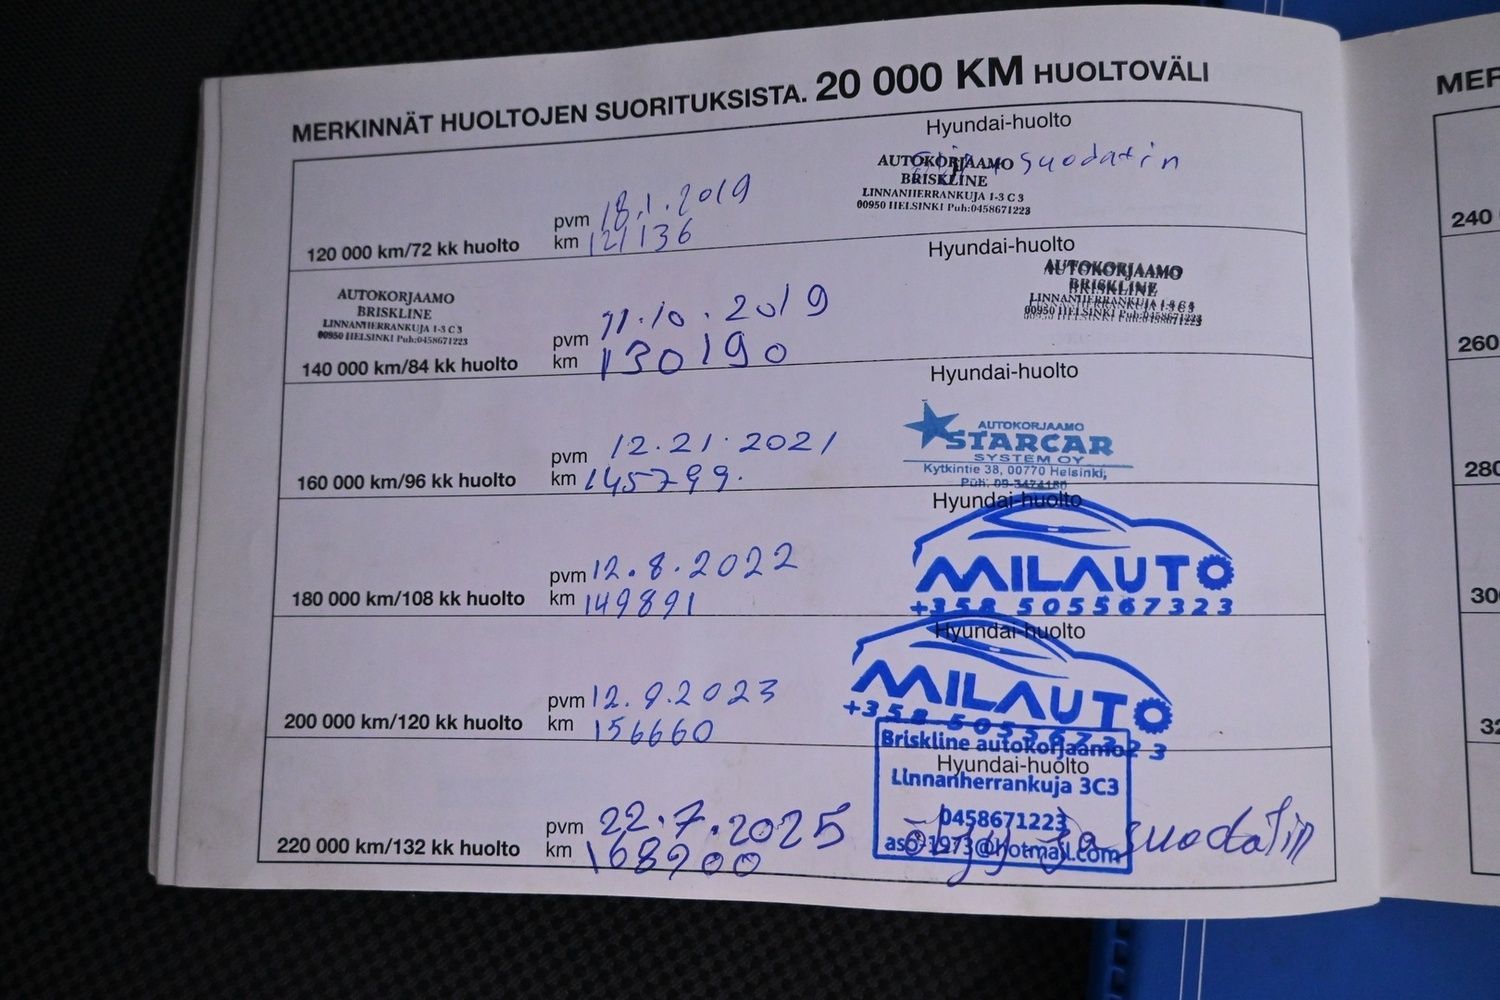 MERKINNÄT HUOLTOJEN SUORITUKSISTA. 20 000 KM HUOLTOVÄLI
MER
Hyundai-huolto
suodatin
AUTOKORJAAMO
BRISKLINE
LINNANHERRANKUJA 1-3 C 3
00950 HELSINKI Puh:0458671223
pvm 18.1.2019
120 000 km/72 kk huolto km 121136
240
Hyundai-huolto
AUTOKORJAAMO
BRISKLINE
LINNANHERRANKUJA 1-3 C 3
00950 HELSINKI Puh:0458671223
AUTOKORJAAMO
BRISKLINE
LINNANHERRANKUJA 1-3 C 3
00950 HELSINKI Puh:0458671223
pvm 11.10.2019
140 000 km/84 kk huolto km 130190
260
Hyundai-huolto
AUTOKORJAAMO
STARCAR
SYSTEM OY
Kytkintie 38, 00770 Helsinki,
Puh. 09-3474180
pvm 12.21.2021
160 000 km/96 kk huolto km 145799.
280
Hyundai-huolto
MILAUTO
+358 505567323
pvm 12.8.2022
180 000 km/108 kk huolto km 149891
30
Hyundai-huolto
MILAUTO
+358 505567323
pvm 12.9.2023
200 000 km/120 kk huolto km 156660
32
Hyundai-huolto
Briskline autokorjaamo
Linnanherrankuja 3C3
0458671223
aso-1973@hotmail.com
öljy ja suodatin
pvm 22.7.2025
220 000 km/132 kk huolto km 168900